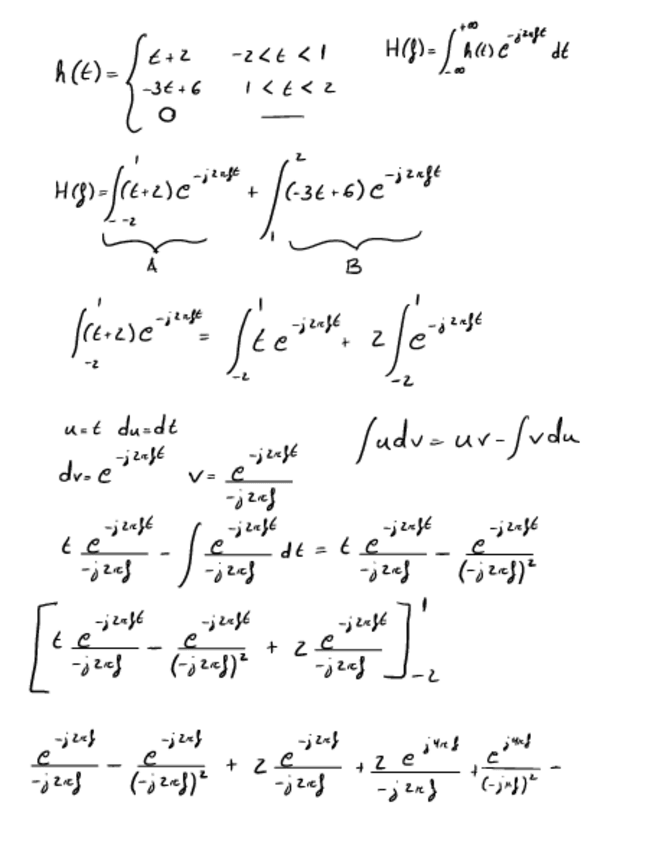 h(t) = { t+2   -2<t<1     H(f) = ∫_{-∞}^{+∞} h(t) e^{-j2πft} dt
-3t+6   1<t<2
0   —
H(f) = ∫_{-2}^{1} (t+2) e^{-j2πft} + ∫_{1}^{2} (-3t+6) e^{-j2πft}
A   B
∫_{-2}^{1} (t+2) e^{-j2πft} = ∫_{-2}^{1} t e^{-j2πft} + 2 ∫_{-2}^{1} e^{-j2πft}
u=t   du=dt     ∫udv = uv - ∫vdu
dv= e^{-j2πft}   v = e^{-j2πft}/(-j2πf)
t e^{-j2πft}/(-j2πf) - ∫ e^{-j2πft}/(-j2πf) dt = t e^{-j2πft}/(-j2πf) - e^{-j2πft}/(-j2πf)²
[ t e^{-j2πft}/(-j2πf) - e^{-j2πft}/(-j2πf)² + 2 e^{-j2πft}/(-j2πf) ]_{-2}^{1}
e^{-j2πf}/(-j2πf) - e^{-j2πf}/(-j2πf)² + 2 e^{-j2πf}/(-j2πf) + 2 e^{j4πf}/(-j2πf) + e^{j4πf}/(-jπf)² -